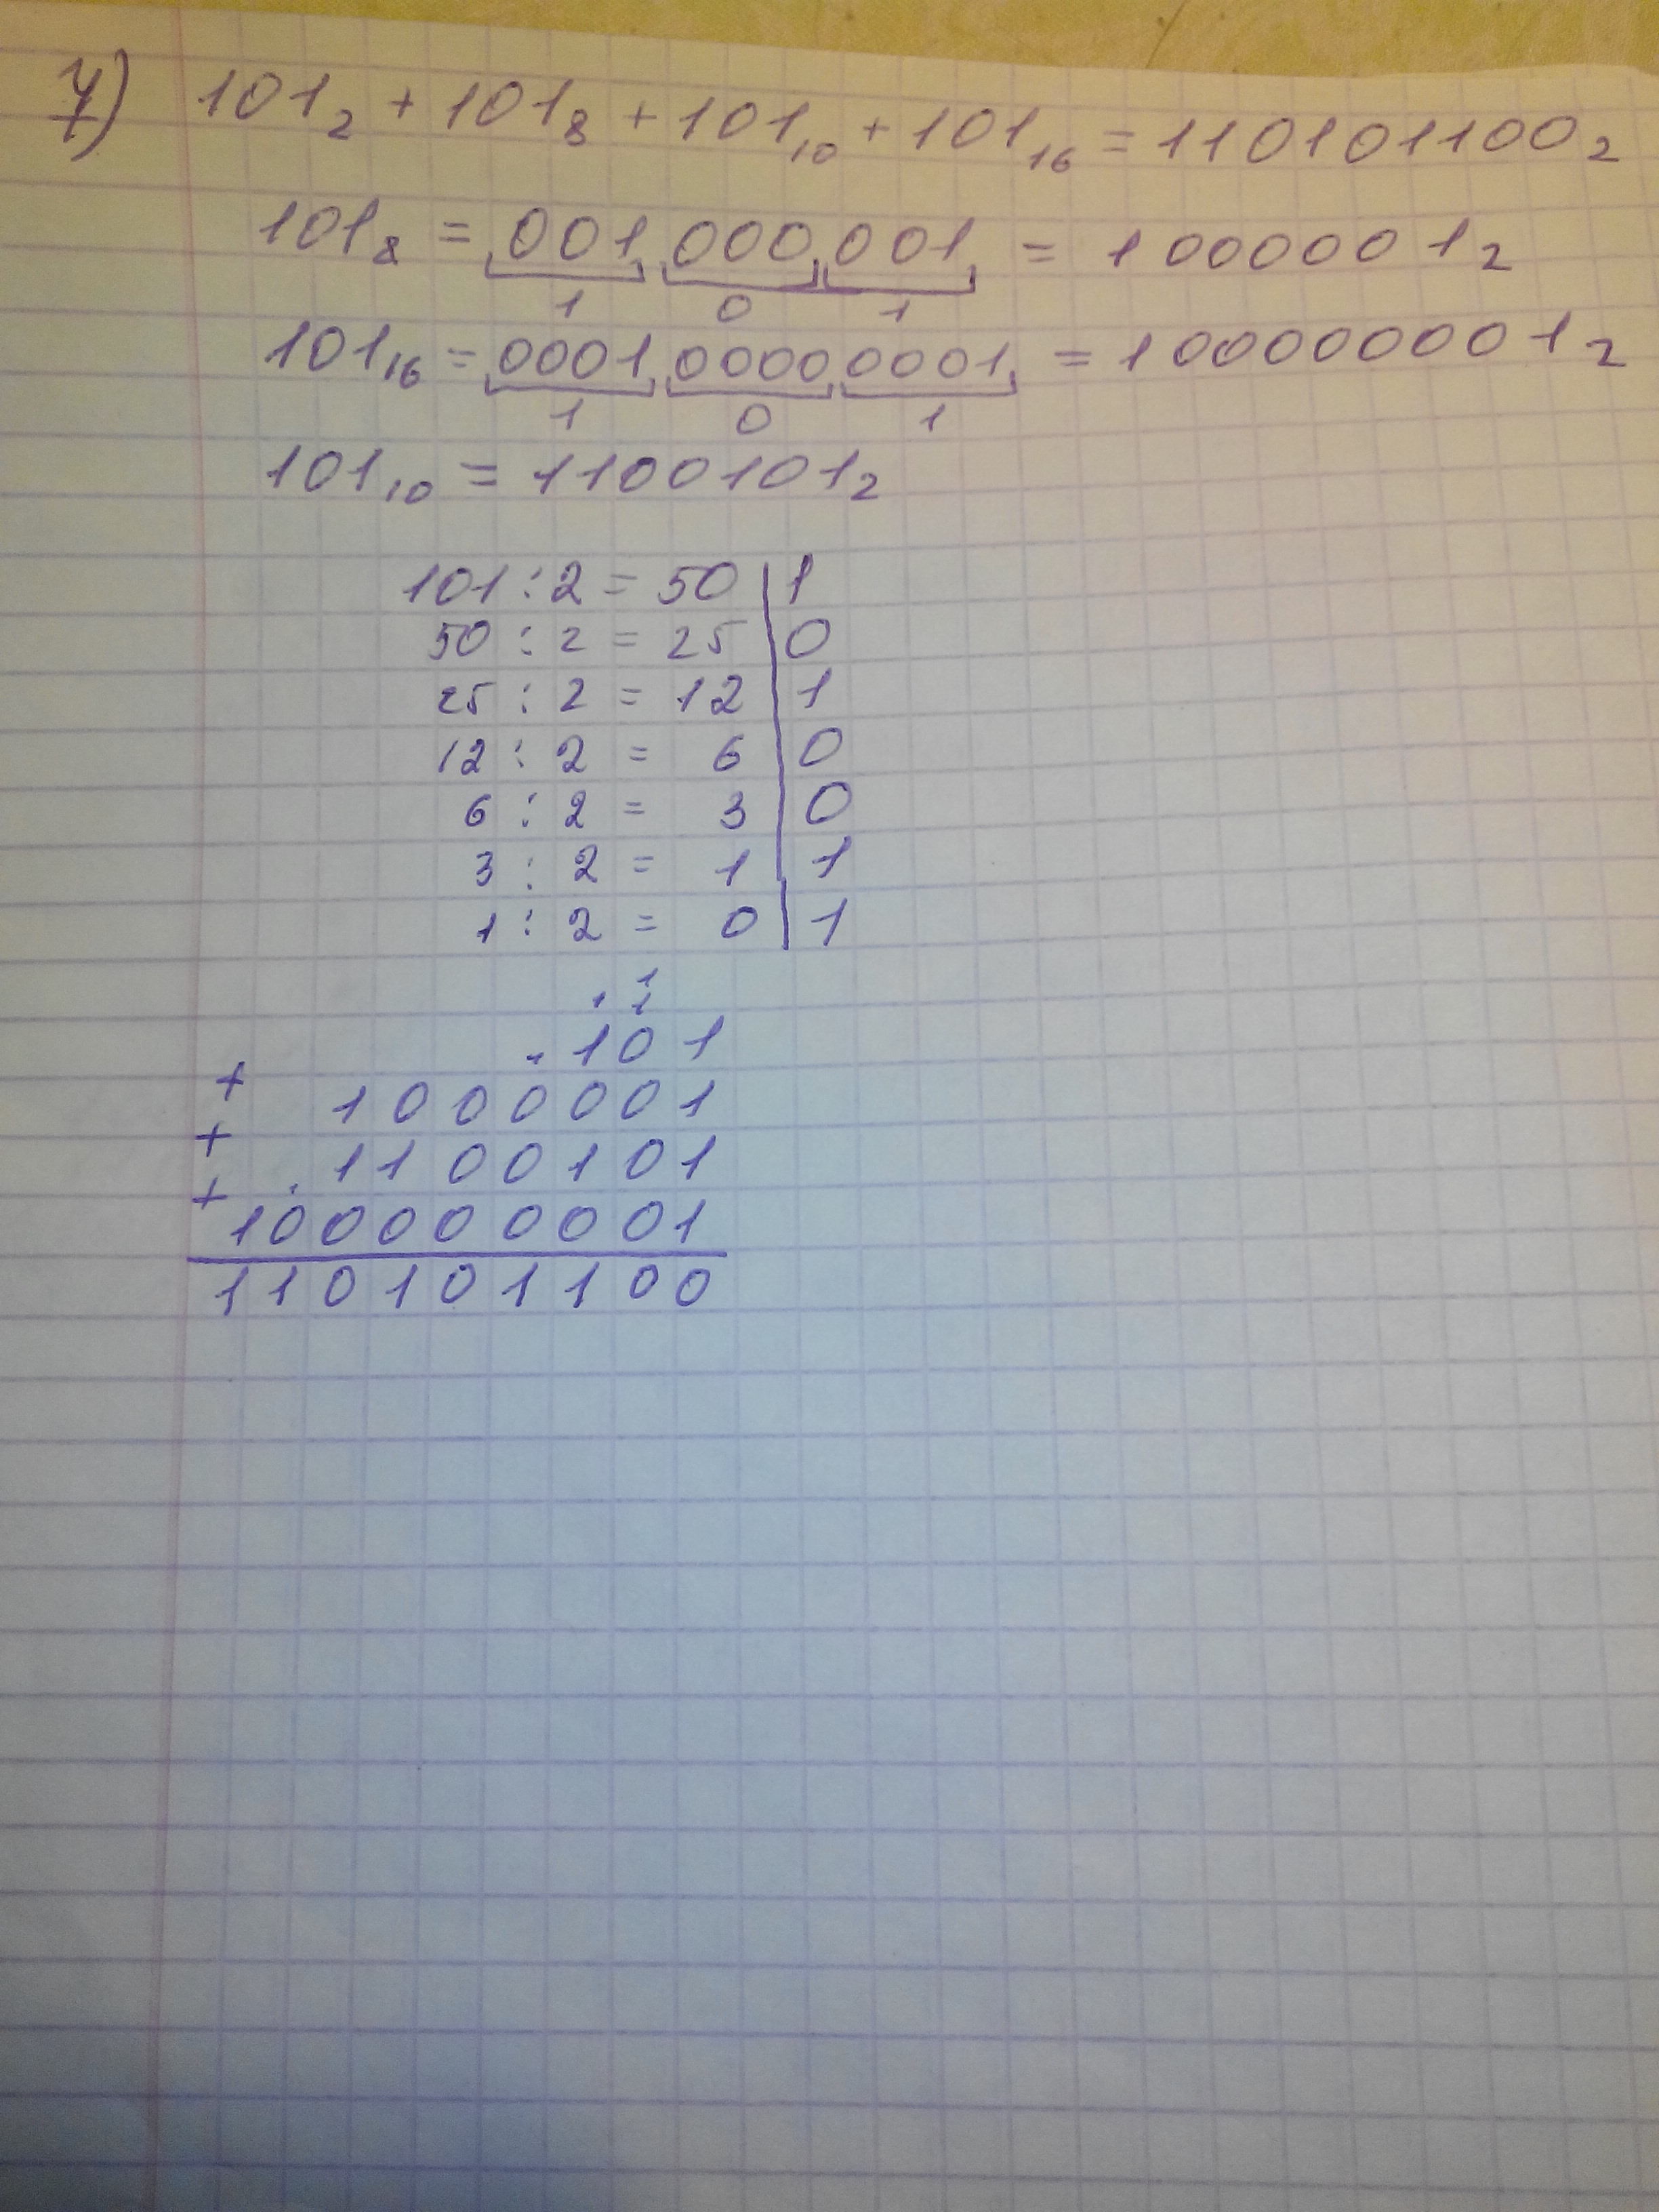 7) 101₂ + 101₈ + 101₁₀ + 101₁₆ = 110101100₂
101₈ = 001 000 001 = 1000001₂
1 0 1
101₁₆ = 0001 0000 0001 = 100000001₂
1 0 1
101₁₀ = 1100101₂
101 : 2 = 50 | 1
50 : 2 = 25 | 0
25 : 2 = 12 | 1
12 : 2 = 6 | 0
6 : 2 = 3 | 0
3 : 2 = 1 | 1
1 : 2 = 0 | 1
1
1 1
101
+ 1000001
+ 1100101
+ 100000001
110101100